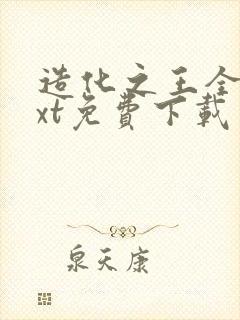 造化之王全
xt免費下載
泉天康